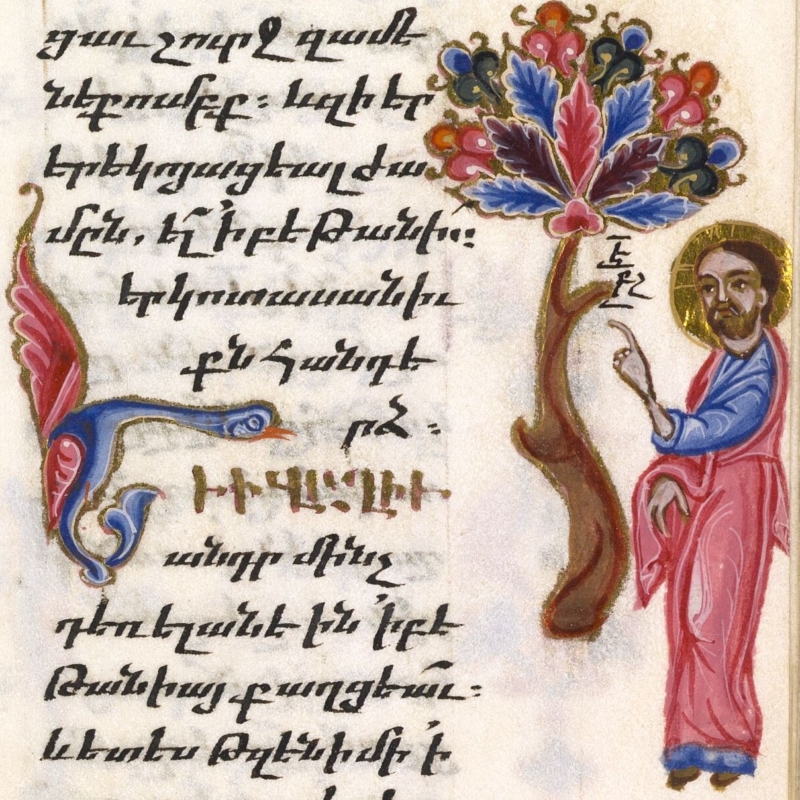 ցաւ շուրջ զամե
նեքումբք։ և զի էր
երեկոյացեալ ժա
մըն, ել ՚ի բեթանի։
երկոտասանիւ
քն հանդե
րձ։
ԵՒ Ի ՎԱՂԻՒ
անդր մինչ
դեռ ելանէին ՚ի բե
թանիայ քաղցեաւ։
և ետես թզենի մի ՚ի